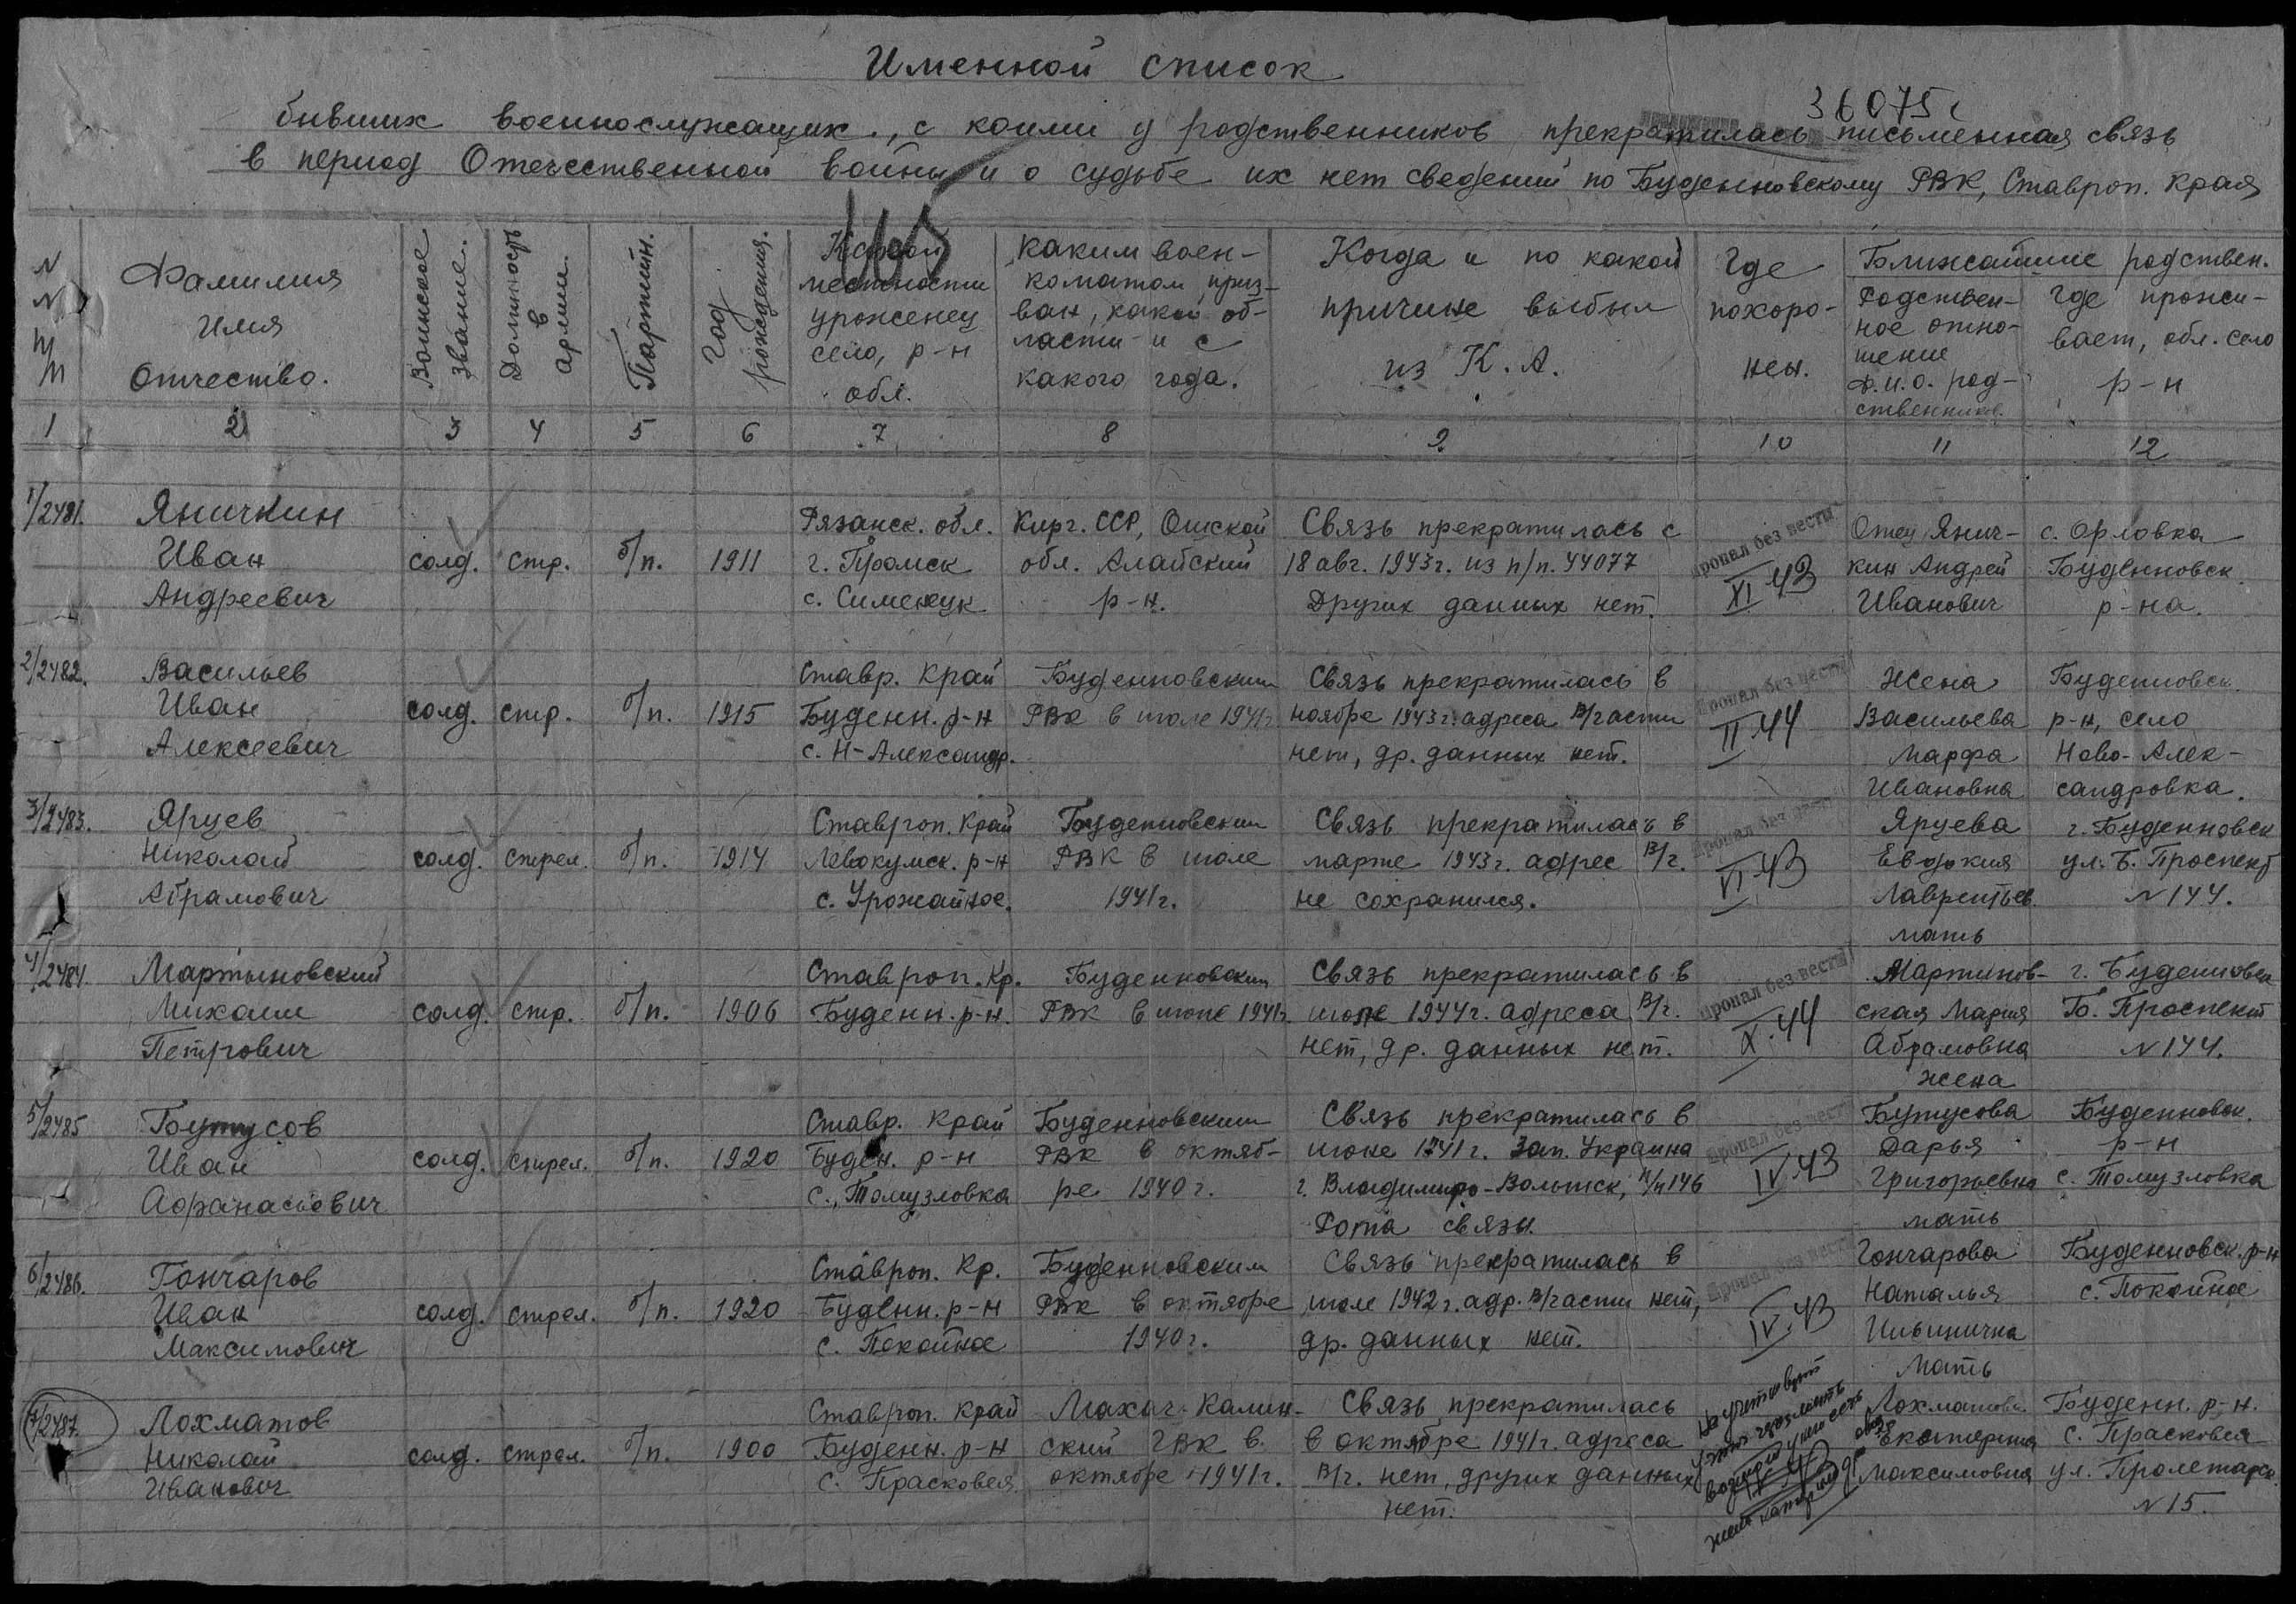 Именной список
36075с
бывших военнослужащих., с коими у родственников прекратилась письменная связь
в период Отечественной войны и о судьбе их нет сведений по Буденновскому РВК, Ставроп. края
N N п/п
Фамилия Имя Отчество.
Воинское звание.
Должность в армии.
Партийн.
Год рождения.
Какой местности уроженец село, р-н обл.
Каким военкоматом призван, какой области и с какого года.
Когда и по какой причине выбыл из К.А.
Где похоронен.
Ближайшие родствен.
Родственное отношение Ф.И.О. родственников.
Где проживает, обл. село р-н
1 2 3 4 5 6 7 8 9 10 11 12
1/2481. Яничкин Рязанск. обл. Кирг. ССР, Ошской Связь прекратилась с пропал без вести Отец Янич- с. Орловка
Иван солд. стр. б/п. 1911 г. Пронск обл. Алайский 18 авг. 1943г. из п/п. 44077 XI 43 кин Андрей Буденновск.
Андреевич р-н. Других данных нет. Иванович р-на.
2/2482. Васильев Ставр. край Буденновским Связь прекратилась в пропал без вести Жена Буденновск.
Иван солд. стр. б/п. 1915 Буденн. р-н РВК в июле 1941г ноябре 1943г. адреса в/части II.44 Васильева р-н, село
Алексеевич с. Н-Александр. нет, др. данных нет. Марфа Ново-Алек-
Ивановна сандровка.
3/2483. Ярцев Ставроп. край Буденновским Связь прекратилась в пропал без вести Ярцева г. Буденновск
Николай солд. стрел. б/п. 1914 Левокумск. р-н РВК в июле марте 1943г. адрес в/г. VI.43 Евдокия ул. Б. Проспект
Абрамович с. Урожайное. 1941г. не сохранился. Лаврентьев. N 144.
мать
4/2484. Мартыновский Ставроп. Кр. Буденновским Связь прекратилась в пропал без вести Мартинов- г. Буденновск
Михаил солд. стр. б/п. 1906 Буденн. р-н. РВК в июне 1941г. июле 1944г. адреса в/г. X.44 ская Мария Б. Проспект
Петрович нет, др. данных нет. Абрамовна N 144.
жена
5/2485 Бутусов Ставр. край Буденновским Связь прекратилась в пропал без вести Бутусова Буденновск.
Иван солд. стрел. б/п. 1920 Буден. р-н РВК в октяб- июне 1941г. Зап. Украина IV.43 Дарья р-н
Афанасьевич с. Томузловка ре 1940г. г. Владимиро-Волынск, п/п 146 Григорьевна с. Томузловка
Рота связи. мать
6/2486. Гончаров Ставроп. Кр. Буденновским Связь прекратилась в пропал без вести Гончарова Буденновск. р-н
Иван солд. стрел. б/п. 1920 Буденн. р-н РВК в октябре июле 1942г. адр. в/части нет, IV.43 Наталья с. Покойное
Максимович с. Покойное 1940г. др. данных нет. Ильинична
Мать
7/2487. Лохматов Ставроп. край Махач-Калин- Связь прекратилась Лохматова Буденн. р-н.
Николай солд. стрел. б/п. 1900 Буденн. р-н ский ГВК в в октябре 1941г. адреса Екатерина с. Прасковея
Иванович с. Прасковея. октябре 1941г. в/г. нет, других данных Максимовна ул. Пролетарск.
нет. N 15.